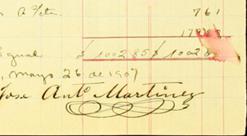 a/cta. 761
igual $ 1002.85 $ 1002.85
, mayo 26 de 1907
Jose Anto Martinez